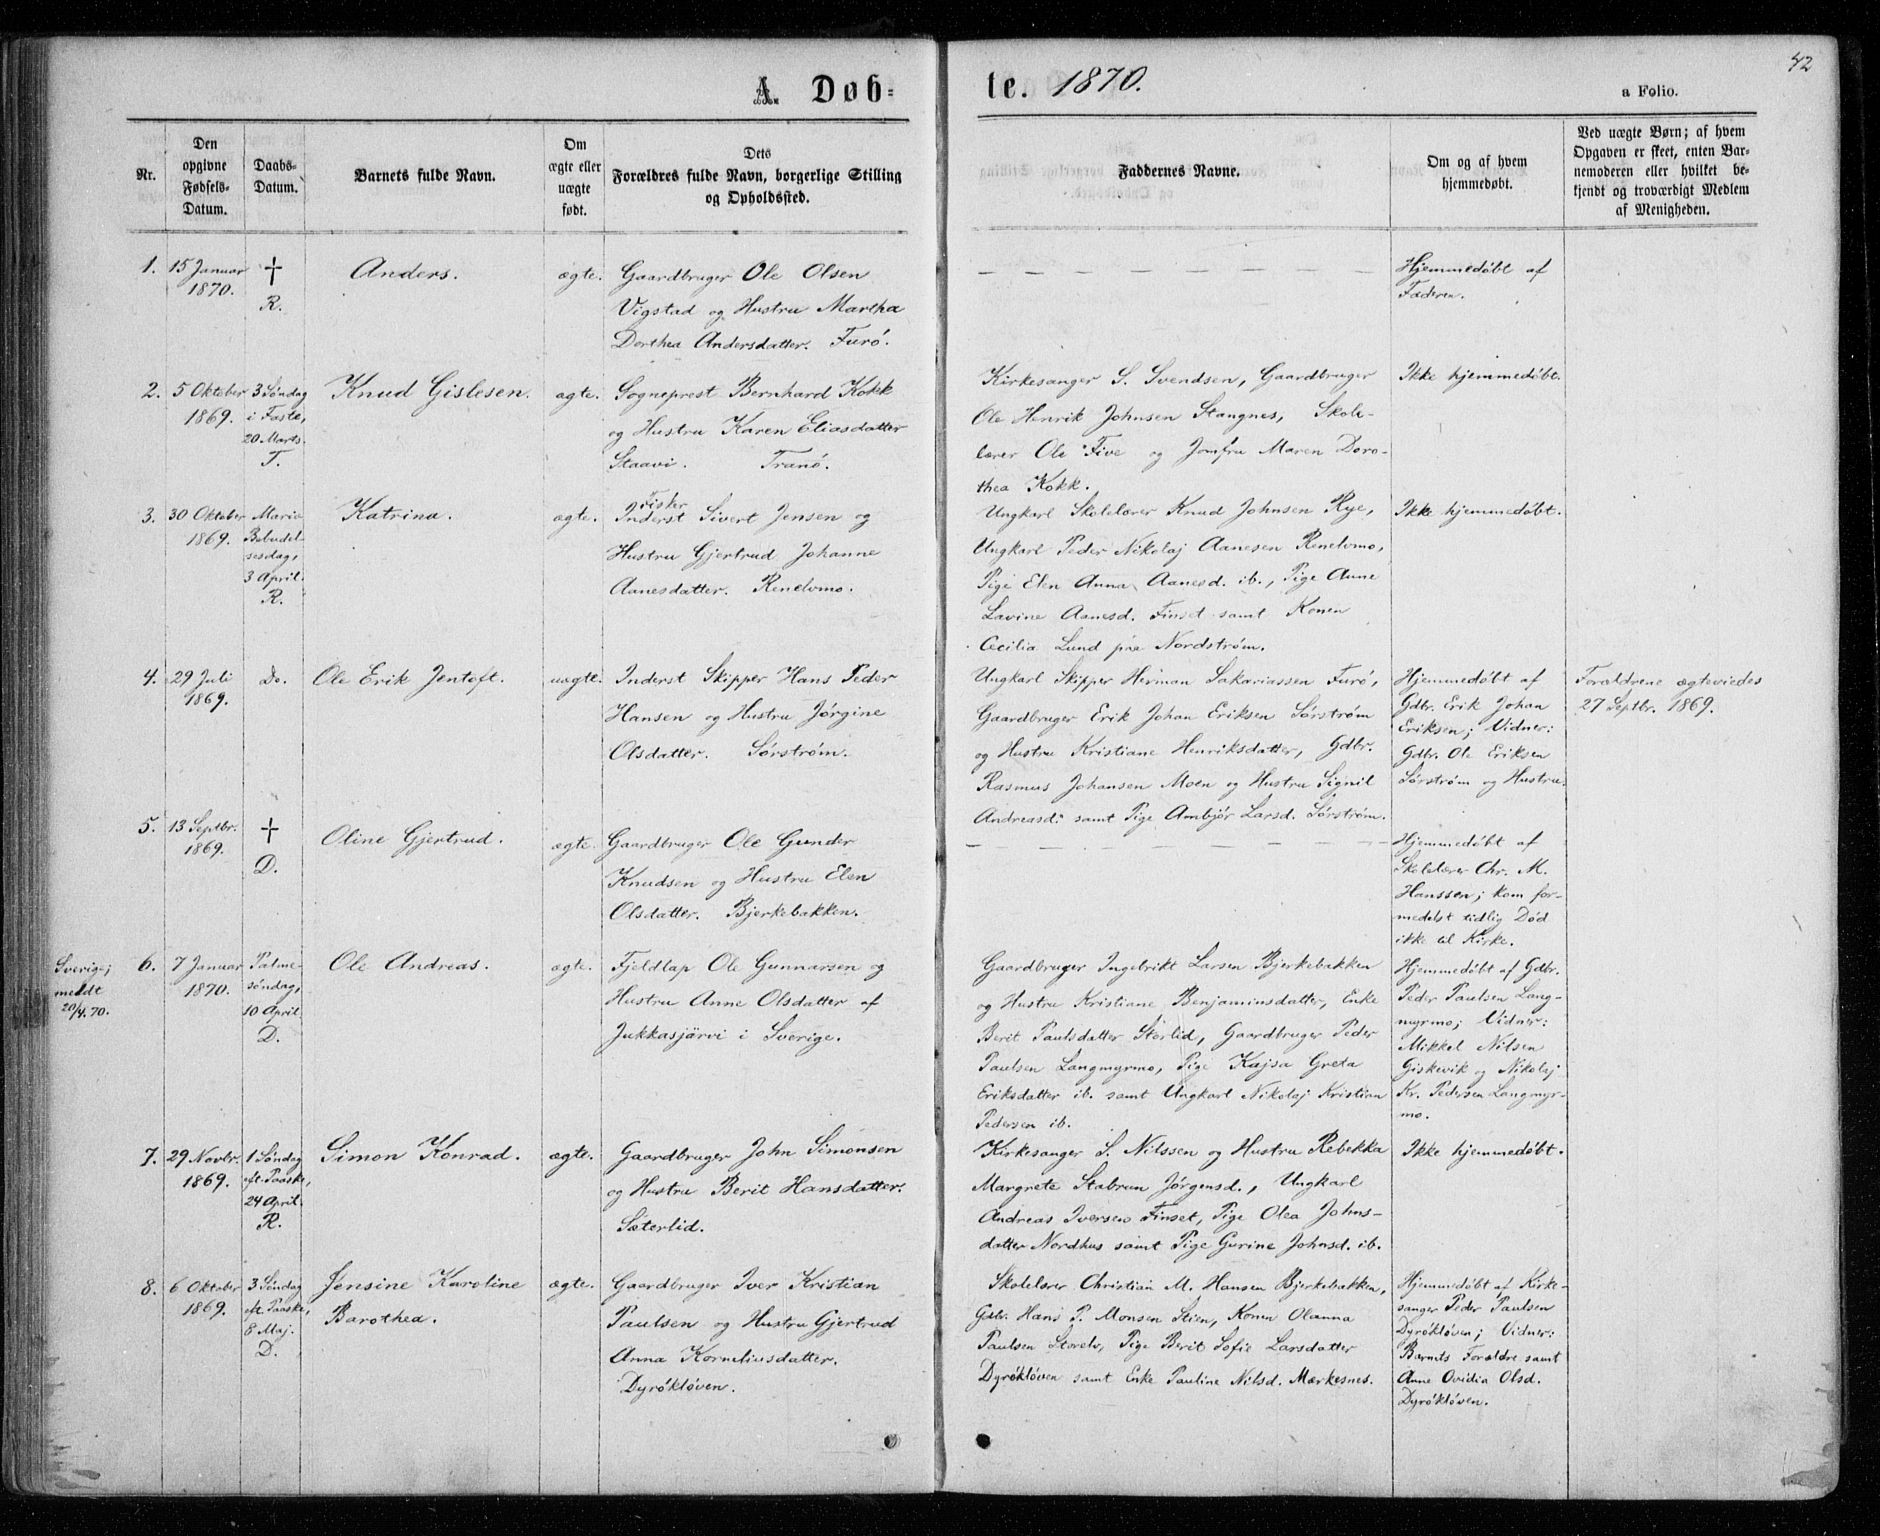 42
A Døb-
te. 1870.
a Folio.
Nr.
Den
opgivne
Fødsels-
Datum.
Daabs-
Datum.
Barnets fulde Navn.
Om
ægte eller
uægte
født.
Dets
Forældres fulde Navn, borgerlige Stilling
og Opholdssted.
Faddernes Navne.
Om og af hvem
hjemmedøbt.
Ved uægte Børn; af hvem
Opgaven er skeet, enten Bar-
nemoderen eller hvilket be-
kjendt og troværdigt Medlem
af Menigheden.
1.
15 Januar
1870.
†
R.
Anders.
ægte.
Gaardbruger Ole Olsen
Vigstad og Hustru Martha
Dorthea Andersdatter. Furö.
— — — — — — — — — —
Hjemmedöbt af
Faderen.
2.
5 Oktober
1869.
3 Söndag
i Faste,
20 Marts.
T.
Knud Gislesen.
ægte.
Sogneprest Bernhard Kokk
og Hustru Karen Eliasdatter
Staavi. Tranö.
Kirkesanger S. Svendsen, Gaardbruger
Ole Henrik Johnsen Stangnes, Skole-
lærer Ole Five og Jomfru Maren Doro-
thea Kokk.
Ikke hjemmedöbt.
3.
30 Oktober
1869.
Maria
Bebudel-
sesdag,
3 April.
R.
Katrina.
ægte.
Fisker
Inderst Sivert Jensen og
Hustru Gjertrud Johanne
Aanesdatter. Renelvmo.
Ungkarl Skolelærer Knud Johnsen Rye,
Ungkarl Peder Nikolaj Aanesen Renelvmo,
Pige Elen Anna Aanesd. ib., Pige Anne
Lavine Aanesd. Finset samt Konen
Cecilia Lund paa Nordström.
Ikke hjemmedöbt.
4.
29 Juli
1869.
Do.
Ole Erik Jentoft.
uægte.
Inderst Skipper Hans Peder
Hansen og Hustru Jörgine
Olsdatter. Sörström.
Ungkarl Skipper Herman Sakariassen Furö,
Gaardbruger Erik Johan Eriksen Sörström
og Hustru Kristiane Henriksdatter, Gdbr.
Rasmus Johansen Moen og Hustru Signil
Andreasd. samt Pige Ambjör Larsd. Sörström.
Hjemmedöbt af
Gdbr. Erik Johan
Eriksen; Vidner:
Gdbr. Ole Eriksen
Sörström og Hustru.
Forældrene ægteviedes
27 Septbr. 1869.
5.
13 Septbr.
1869.
†
D.
Oline Gjertrud.
ægte.
Gaardbruger Ole Gunder
Knudsen og Hustru Elen
Olsdatter. Bjerkebakken.
— — — — — — — — — —
Hjemmedöbt af
Skolelærer Chr. M.
Hanssen; kom for-
medelst tidlig Död
ikke til Kirke.
Sverige;
meldt
20/4.70.
6.
7 Januar
1870.
Palme-
söndag,
10 April.
D.
Ole Andreas.
ægte.
Fjeldlap Ole Gunnarsen og
Hustru Anne Olsdatter af
Jukkasjärvi i Sverige.
Gaardbruger Ingebrikt Larsen Bjerkebakken
og Hustru Kristiane Benjaminsdatter, Enke
Berit Paulsdatter Storlid, Gaardbruger Peder
Paulsen Langmyrmo, Pige Kajsa Greta
Eriksdatter ib. samt Ungkarl Nikolaj Kristian
Pedersen ib.
Hjemmedöbt af Gdbr.
Peder Paulsen Lang-
myrmo; Vidner:
Mikkel Nilsen
Giskevik og Nikolaj
Kr. Pedersen Langmyr-
mo.
7.
29 Novbr.
1869.
1 Söndag
eft. Paaske,
24 April.
R.
Simon Konrad.
ægte.
Gaardbruger John Simonsen
og Hustru Berit Hansdatter.
Sæterlid.
Kirkesanger S. Nilssen og Hustru Rebekka
Margrete Stabrun Jörgensd., Ungkarl
Andreas Iversen Finset, Pige Olea Johns-
datter Nordhus samt Pige Gurine Johnsd. ib.
Ikke hjemmedöbt.
8.
6 Oktober
1869.
3 Söndag
eft. Paaske,
8 Maj.
D.
Jensine Karoline
Barothea.
ægte.
Gaardbruger Iver Kristian
Paulsen og Hustru Gjertrud
Anna Korneliusdatter.
Dyröklöven.
Skolelærer Christian M. Hansen Bjerkebakken,
Gdbr. Hans P. Monsen Stien, Konen Olanna
Paulsen Storelv, Pige Berit Sofie Larsdatter
Dyröklöven samt Enke Pauline Nilsd. Mærkesnes.
Hjemmedöbt af Kirke-
sanger Peder Paulsen
Dyröklöven; Vidner:
Barnets Forældre samt
Anne Ovidia Olsd.
Dyröklöven.